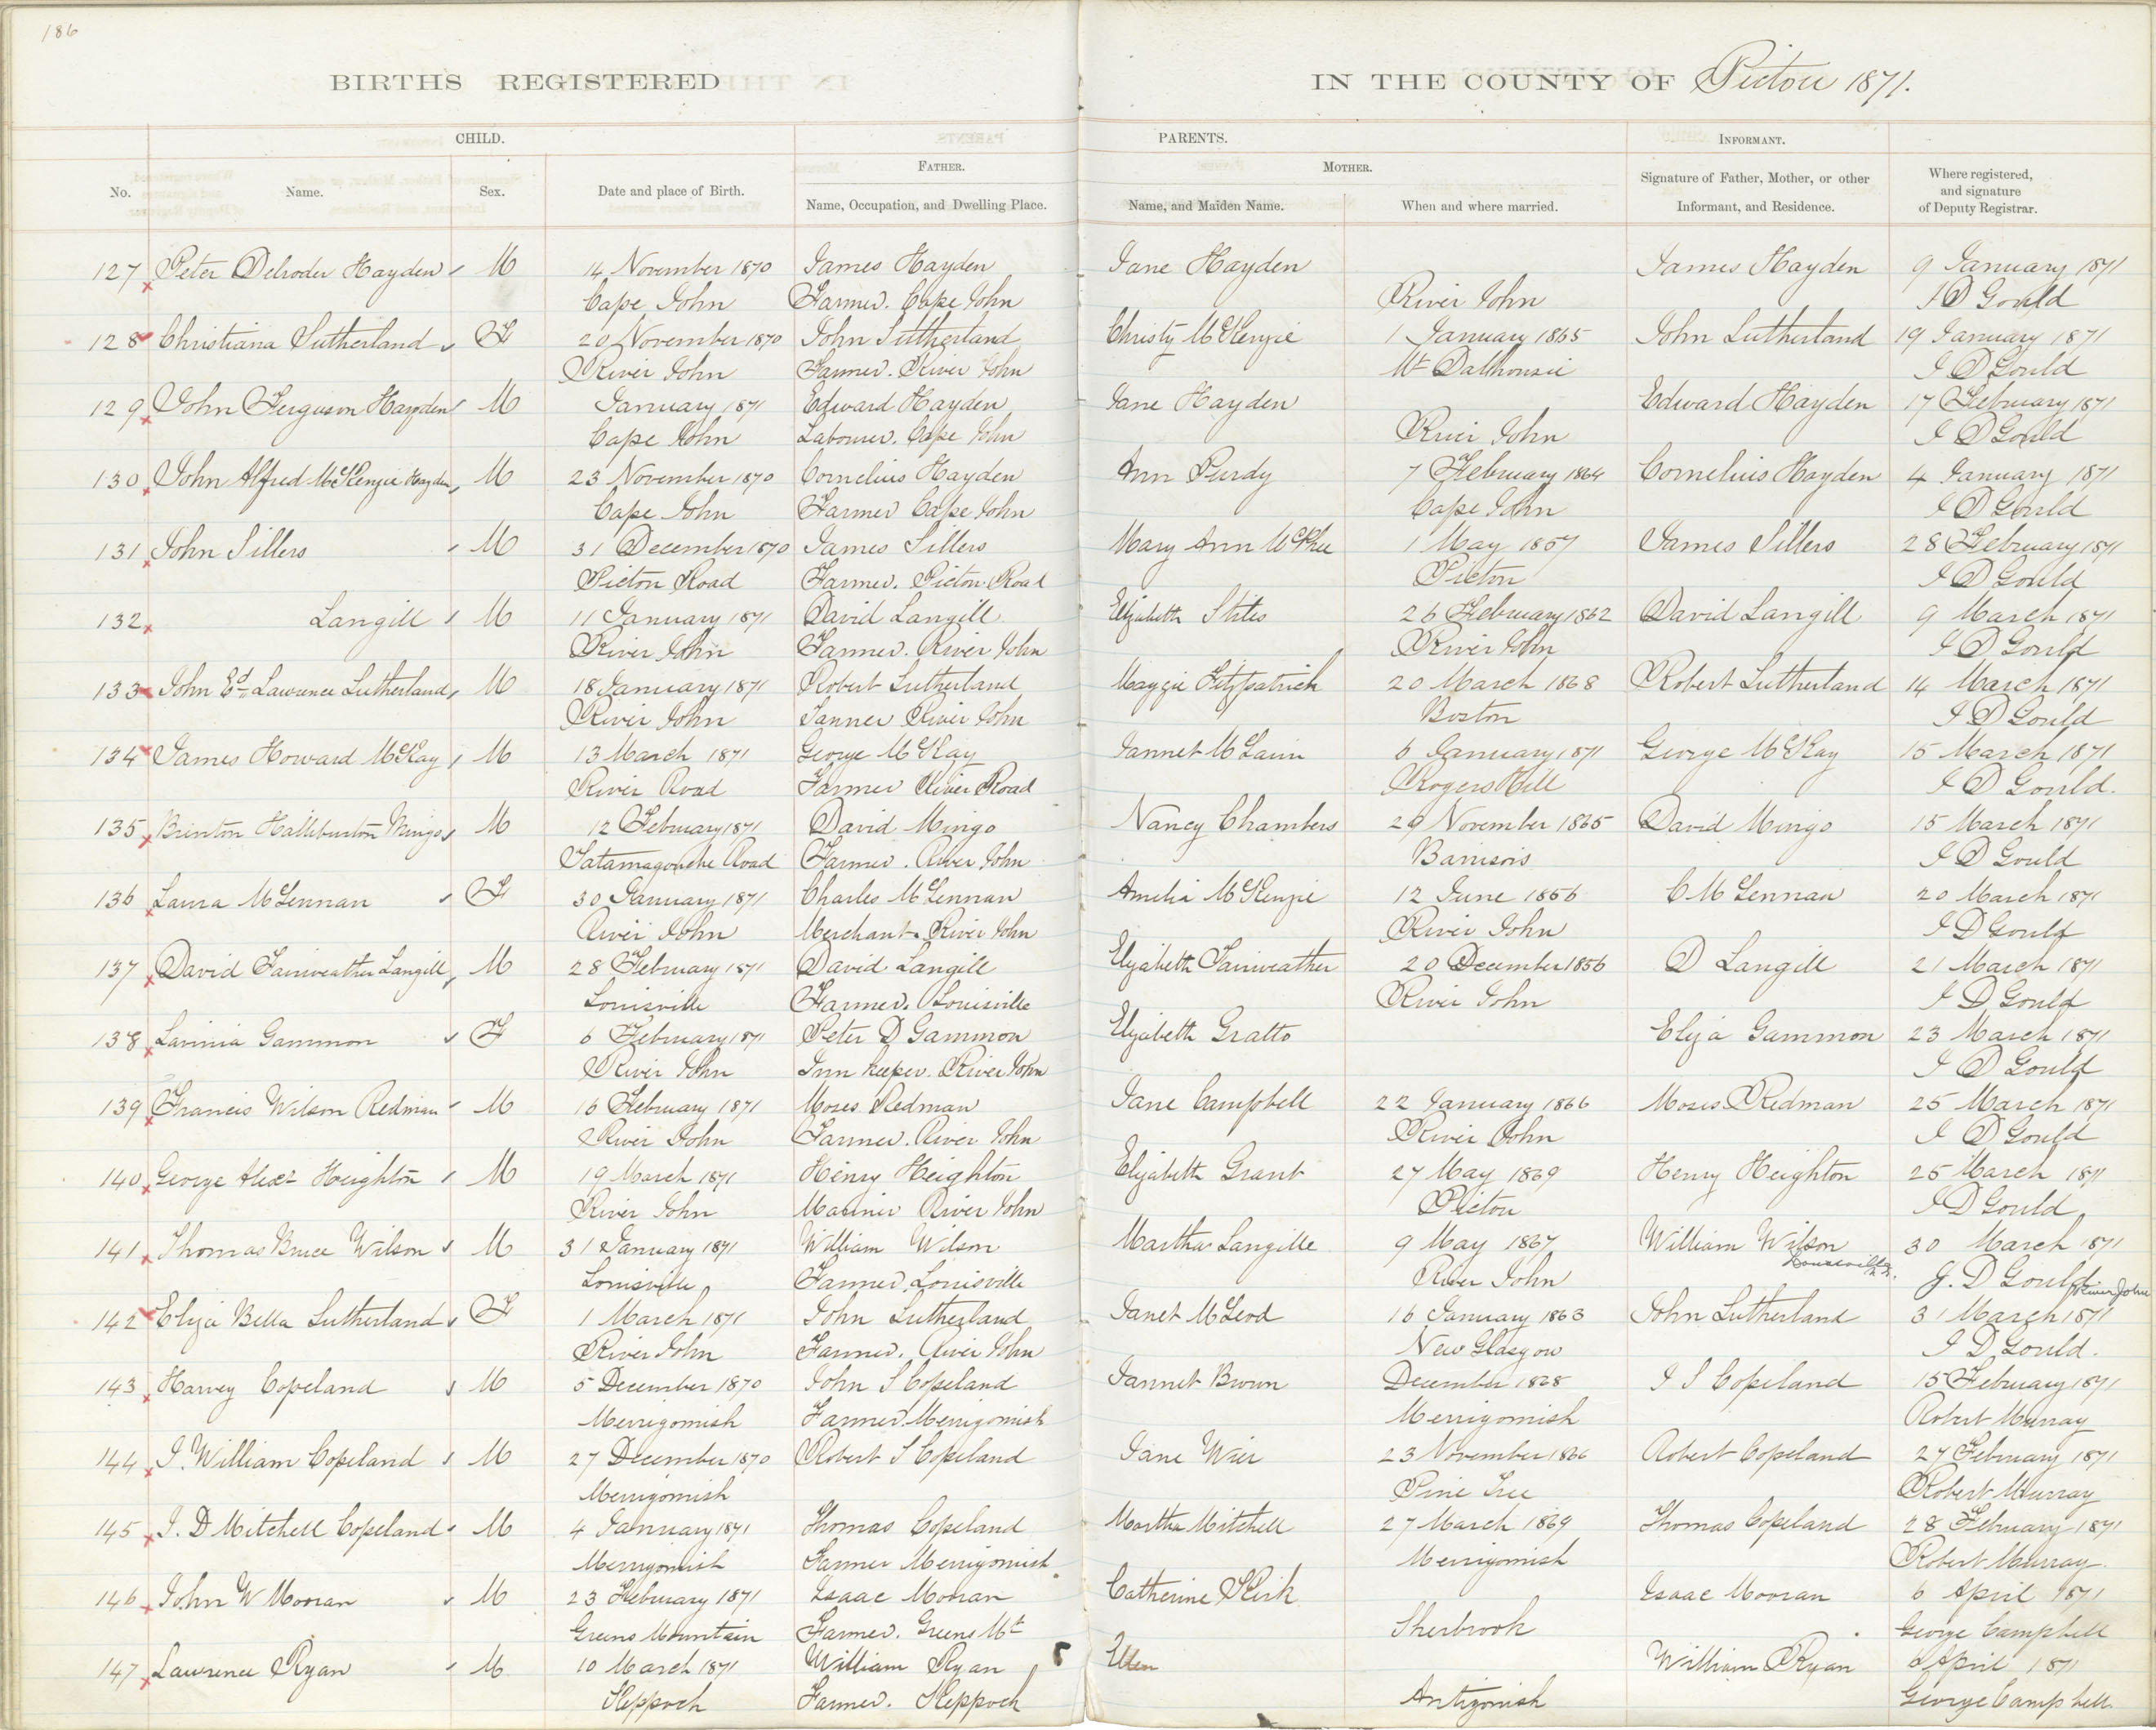 186
BIRTHS REGISTERED IN THE COUNTY OF Pictou 1871.
CHILD. PARENTS. INFORMANT.
FATHER. MOTHER.
No. Name. Sex. Date and place of Birth. Name, Occupation, and Dwelling Place. Name, and Maiden Name. When and where married. Signature of Father, Mother, or other Informant, and Residence. Where registered, and signature of Deputy Registrar.
127 Peter Delroder Hayden M 14 November 1870 James Hayden Jane Hayden James Hayden 9 January 1871
Cape John Farmer. Cape John River John I D Gould
128 Christiana Sutherland F 20 November 1870 John Sutherland Christy McKenzie 1 January 1865 John Sutherland 19 January 1871
River John Farmer. River John Mt Dalhousie I D Gould
129 John Ferguson Hayden M January 1871 Edward Hayden Jane Hayden Edward Hayden 17 February 1871
Cape John Labourer. Cape John River John I D Gould
130 John Alfred McKenzie Hayden M 23 November 1870 Cornelius Hayden Ann Purdy 7 February 1864 Cornelius Hayden 4 January 1871
Cape John Farmer Cape John Cape John I D Gould
131 John Sillers M 31 December 1870 James Sillers Mary Ann McPhee 1 May 1857 James Sillers 28 February 1871
Picton Road Farmer. Picton Road Picton I D Gould
132 Langill M 11 January 1871 David Langill Elizabeth Stiles 26 February 1862 David Langill 9 March 1871
River John Farmer. River John River John I D Gould
133 John Ed. Lawrence Sutherland M 18 January 1871 Robert Sutherland Maggie Fitzpatrick 20 March 1868 Robert Sutherland 14 March 1871
River John Tanner River John Boston I D Gould
134 James Howard McKay M 13 March 1871 George McKay Jannet McLain 6 January 1871 George McKay 15 March 1871
River Road Farmer River Road Rogers Hill I D Gould.
135 Brenton Halliburton Mingo M 12 February 1871 David Mingo Nancy Chambers 29 November 1865 David Mingo 15 March 1871
Tatamagouche Road Farmer. River John I D Gould
136 Laura McLennan F 30 January 1871 Charles McLennan Amelia McKenzie 12 June 1856 C McLennan 20 March 1871
River John Merchant. River John River John I D Gould
137 David Fairweather Langill M 28 February 1871 David Langill Elizabeth Fairweather 20 December 1856 D Langill 21 March 1871
Louisville Farmer. Louisville River John I D Gould
138 Lavinia Gammon F 6 February 1871 Peter D Gammon Elizabeth Gratto Eliza Gammon 23 March 1871
River John Inn keeper. River John I D Gould
139 Francis Wilson Redman M 16 February 1871 Moses Redman Jane Campbell 22 January 1866 Moses Redman 25 March 1871
River John Farmer. River John River John I D Gould
140 George Alexr Heighton M 19 March 1871 Henry Heighton Elizabeth Grant 27 May 1869 Henry Heighton 25 March 1871
River John Mariner River John Pictou I D Gould
141 Thomas Bruce Wilson M 31 January 1871 William Wilson Martha Langille 9 May 1867 William Wilson 30 March 1871
Louisville Farmer. Louisville River John Louisville J. D Gould River John
142 Eliza Bella Sutherland F 1 March 1871 John Sutherland Janet McLeod 16 January 1863 John Sutherland 31 March 1871
River John Farmer. River John New Glasgow I D Gould.
143 Harvey Copeland M 5 December 1870 John S Copeland Jannet Brown December 1828 I S Copeland 15 February 1871
Merrigomish Farmer Merrigomish Merrigomish Robert Murray
144 J. William Copeland M 27 December 1870 Robert S Copeland Jane Wier 23 November 1866 Robert Copeland 27 February 1871
Merrigomish Pine Tree Robert Murray
145 J. D Mitchell Copeland M 4 January 1871 Thomas Copeland Martha Mitchell 27 March 1869 Thomas Copeland 28 February 1871
Merrigomish Farmer Merrigomish. Merrigomish Robert Murray
146 John W Mooran M 23 February 1871 Isaac Mooran Catherine Kirk Isaac Mooran 6 April 1871
Greens Mountain Farmer. Greens Mt Sherbrook George Campbell
147 Lawrence Ryan M 10 March 1871 William Ryan Ellen William Ryan 6 April 1871
Keppoch Farmer. Keppoch Antigonish George Campbell